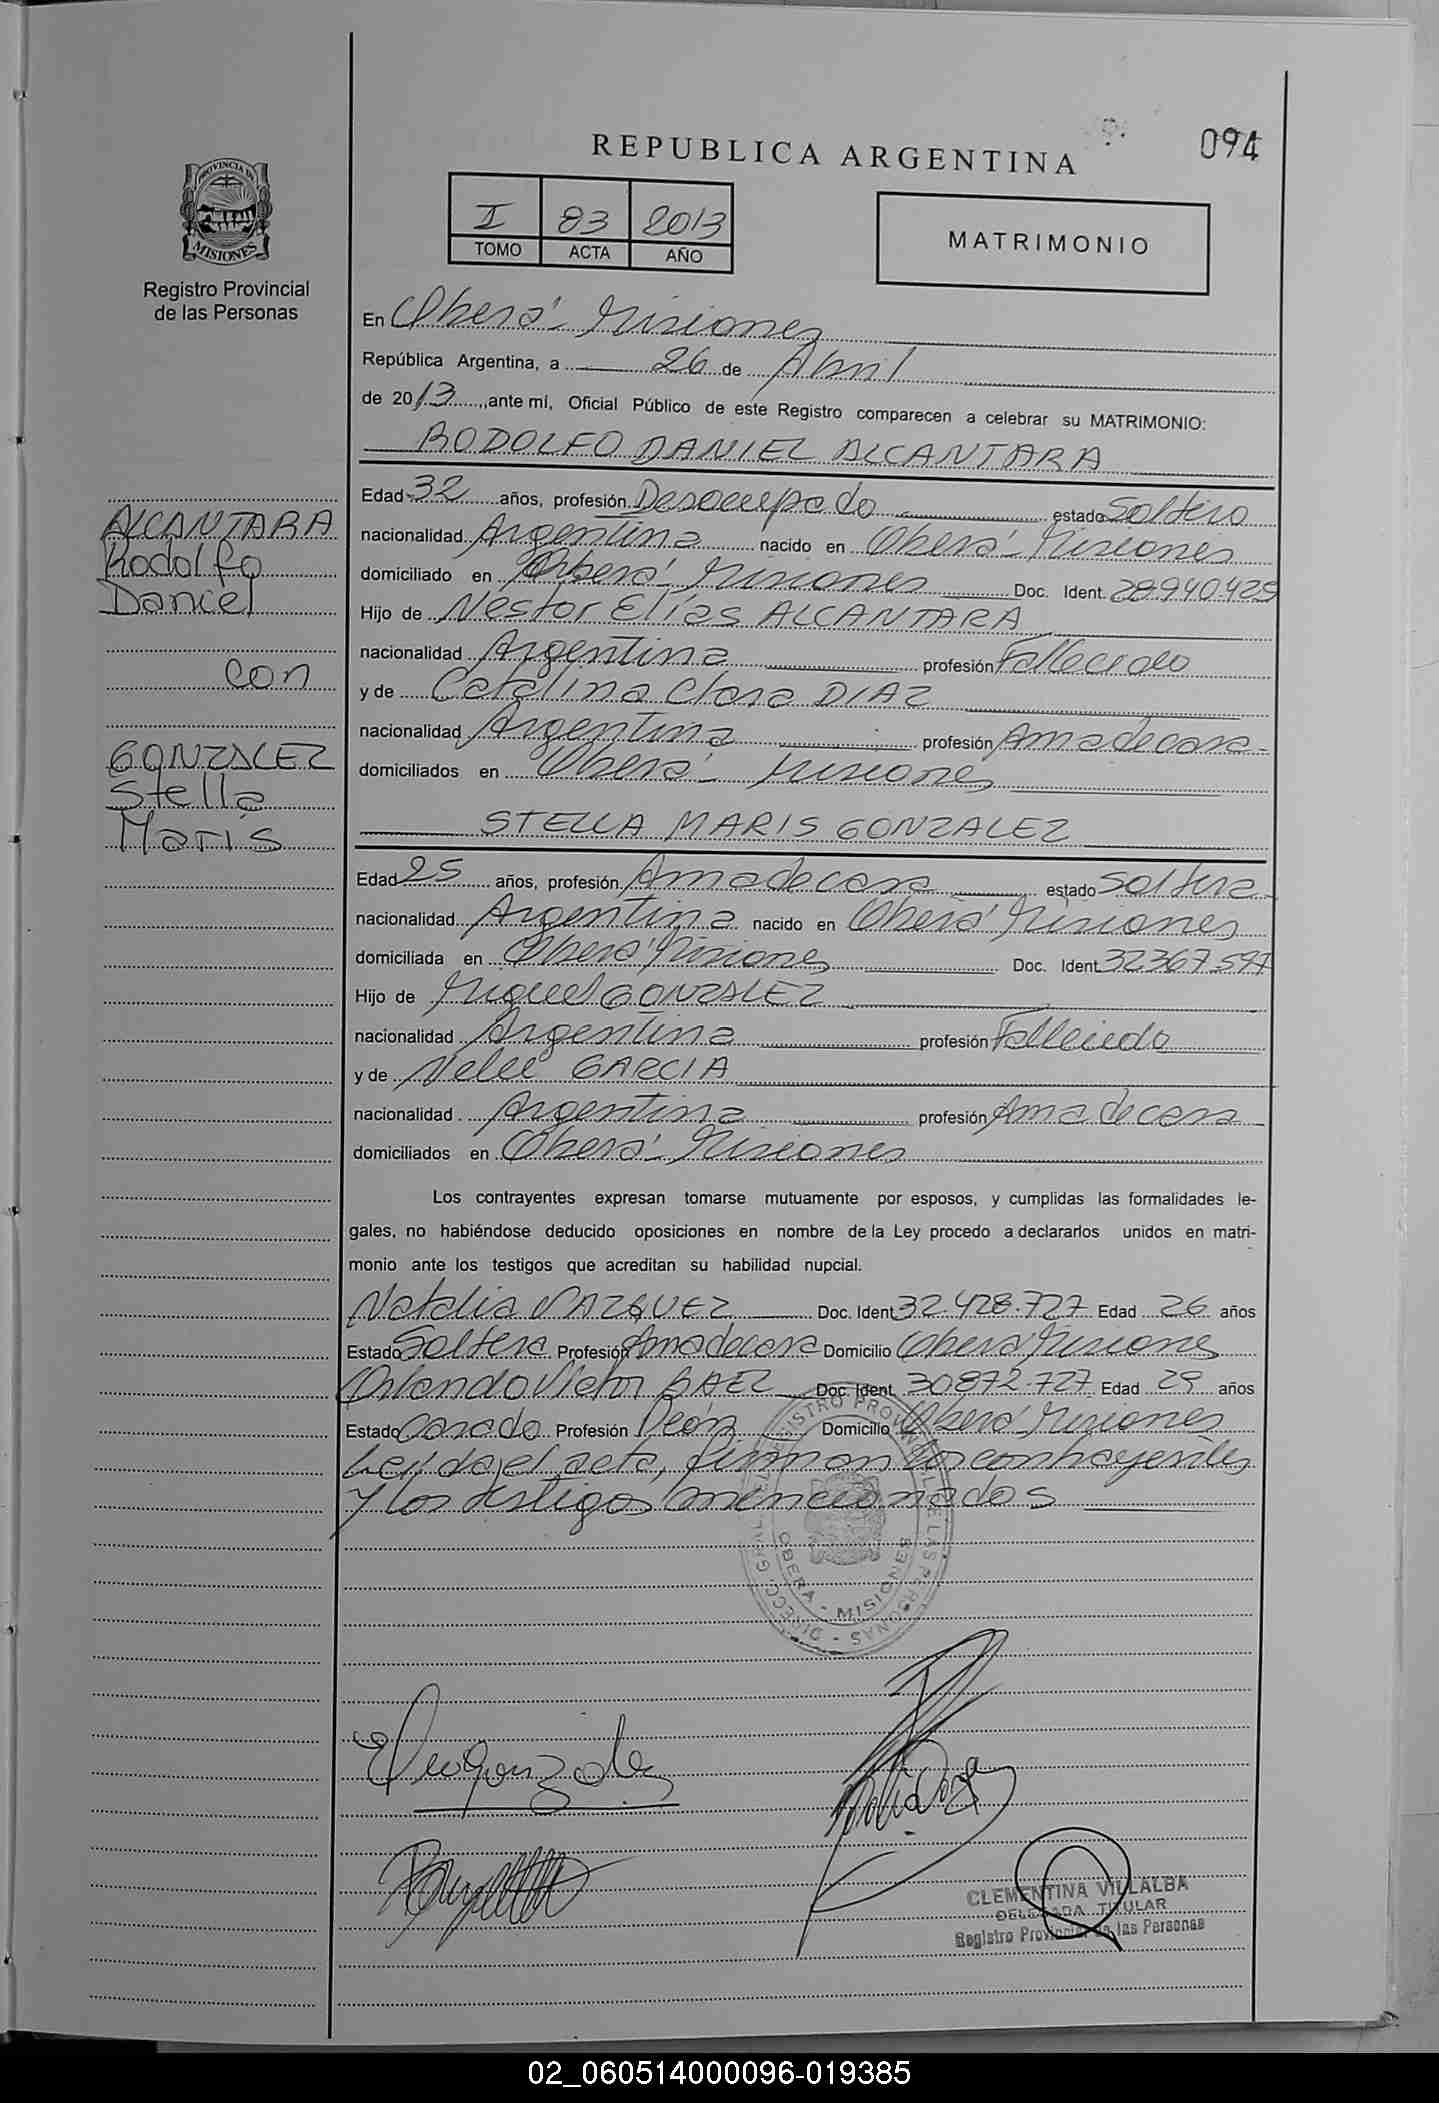 REPUBLICA ARGENTINA
094
PROVINCIA DE
MISIONES
Registro Provincial
de las Personas
I 83 2013
TOMO ACTA AÑO
MATRIMONIO
En Oberá - Misiones
República Argentina, a 26 de Abril
de 2013, ante mí, Oficial Público de este Registro comparecen a celebrar su MATRIMONIO:
RODOLFO DANIEL ALCANTARA
Edad 32 años, profesión Desocupado estado Soltero
nacionalidad Argentina nacido en Oberá - Misiones
domiciliado en Oberá - Misiones Doc. Ident. 28.940.429
Hijo de Néstor Elías ALCANTARA
nacionalidad Argentina profesión Fallecido
y de Catalina Clara DIAZ
nacionalidad Argentina profesión Ama de casa
domiciliados en Oberá - Misiones
ALCANTARA
Rodolfo
Daniel
con
GONZALEZ
Stella
Maris
STELLA MARIS GONZALEZ
Edad 25 años, profesión Ama de casa estado Soltera
nacionalidad Argentina nacido en Oberá Misiones
domiciliada en Oberá Misiones Doc. Ident.
Hijo de Miguel GONZALEZ
nacionalidad Argentina profesión Fallecido
y de GARCIA
nacionalidad Argentina profesión Ama de casa
domiciliados en Oberá - Misiones
Los contrayentes expresan tomarse mutuamente por esposos, y cumplidas las formalidades le-
gales, no habiéndose deducido oposiciones en nombre de la Ley procedo a declararlos unidos en matri-
monio ante los testigos que acreditan su habilidad nupcial.
Natalia VAZQUEZ Doc. Ident 32.428.727 Edad 26 años
Estado Soltera Profesión Ama de casa Domicilio Oberá Misiones
Orlando Victor BAEZ Doc. Ident. 30872.727 Edad 29 años
Estado Casado Profesión Peón Domicilio Oberá Misiones
Leída el acta, firman los contrayentes
y los testigos mencionados
DIRECC. GRAL. DEL REGISTRO PROVINCIAL DE LAS PERSONAS
OBERA - MISIONES
CLEMENTINA VILLALBA
DELEGADA TITULAR
Registro Provincial de las Personas
02_060514000096-019385